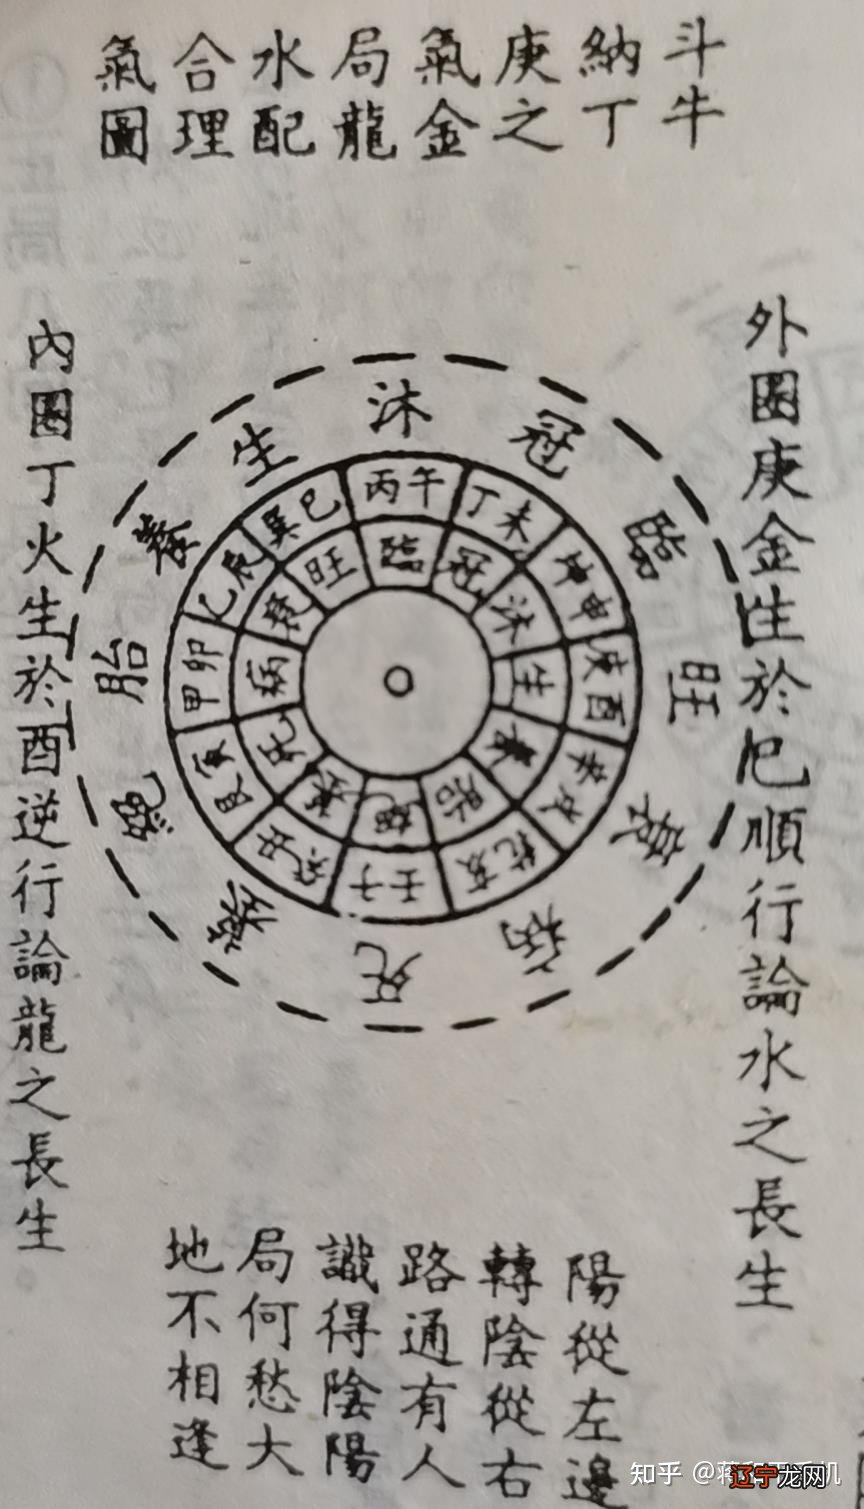 斗牛
納丁
庚之
氣金
局龍
水配
合理
氣圖
外圈庚金生於巳順行論水之長生
內圈丁火生於酉逆行論龍之長生
沐
冠
臨
旺
衰
病
死
墓
絕
胎
養
生
丙午
丁未
坤申
庚酉
辛戌
乾亥
壬子
癸丑
艮寅
甲卯
乙辰
巽巳
臨
冠
沐
生
養
胎
絕
墓
死
病
衰
旺
陽從左邊
轉陰從右
路通有人
識得陰陽
局何愁大
地不相逢
知乎
辽宁龙网